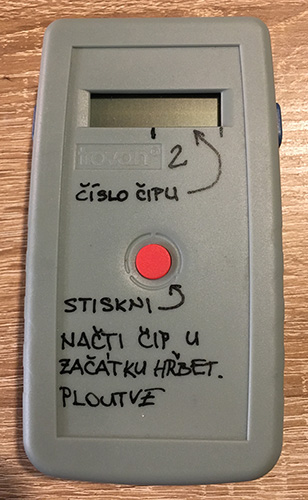 trovan®
2
ČÍSLO ČIPU
STISKNI
NAČTI ČIP U
ZAČÁTKU HŘBET.
PLOUTVE